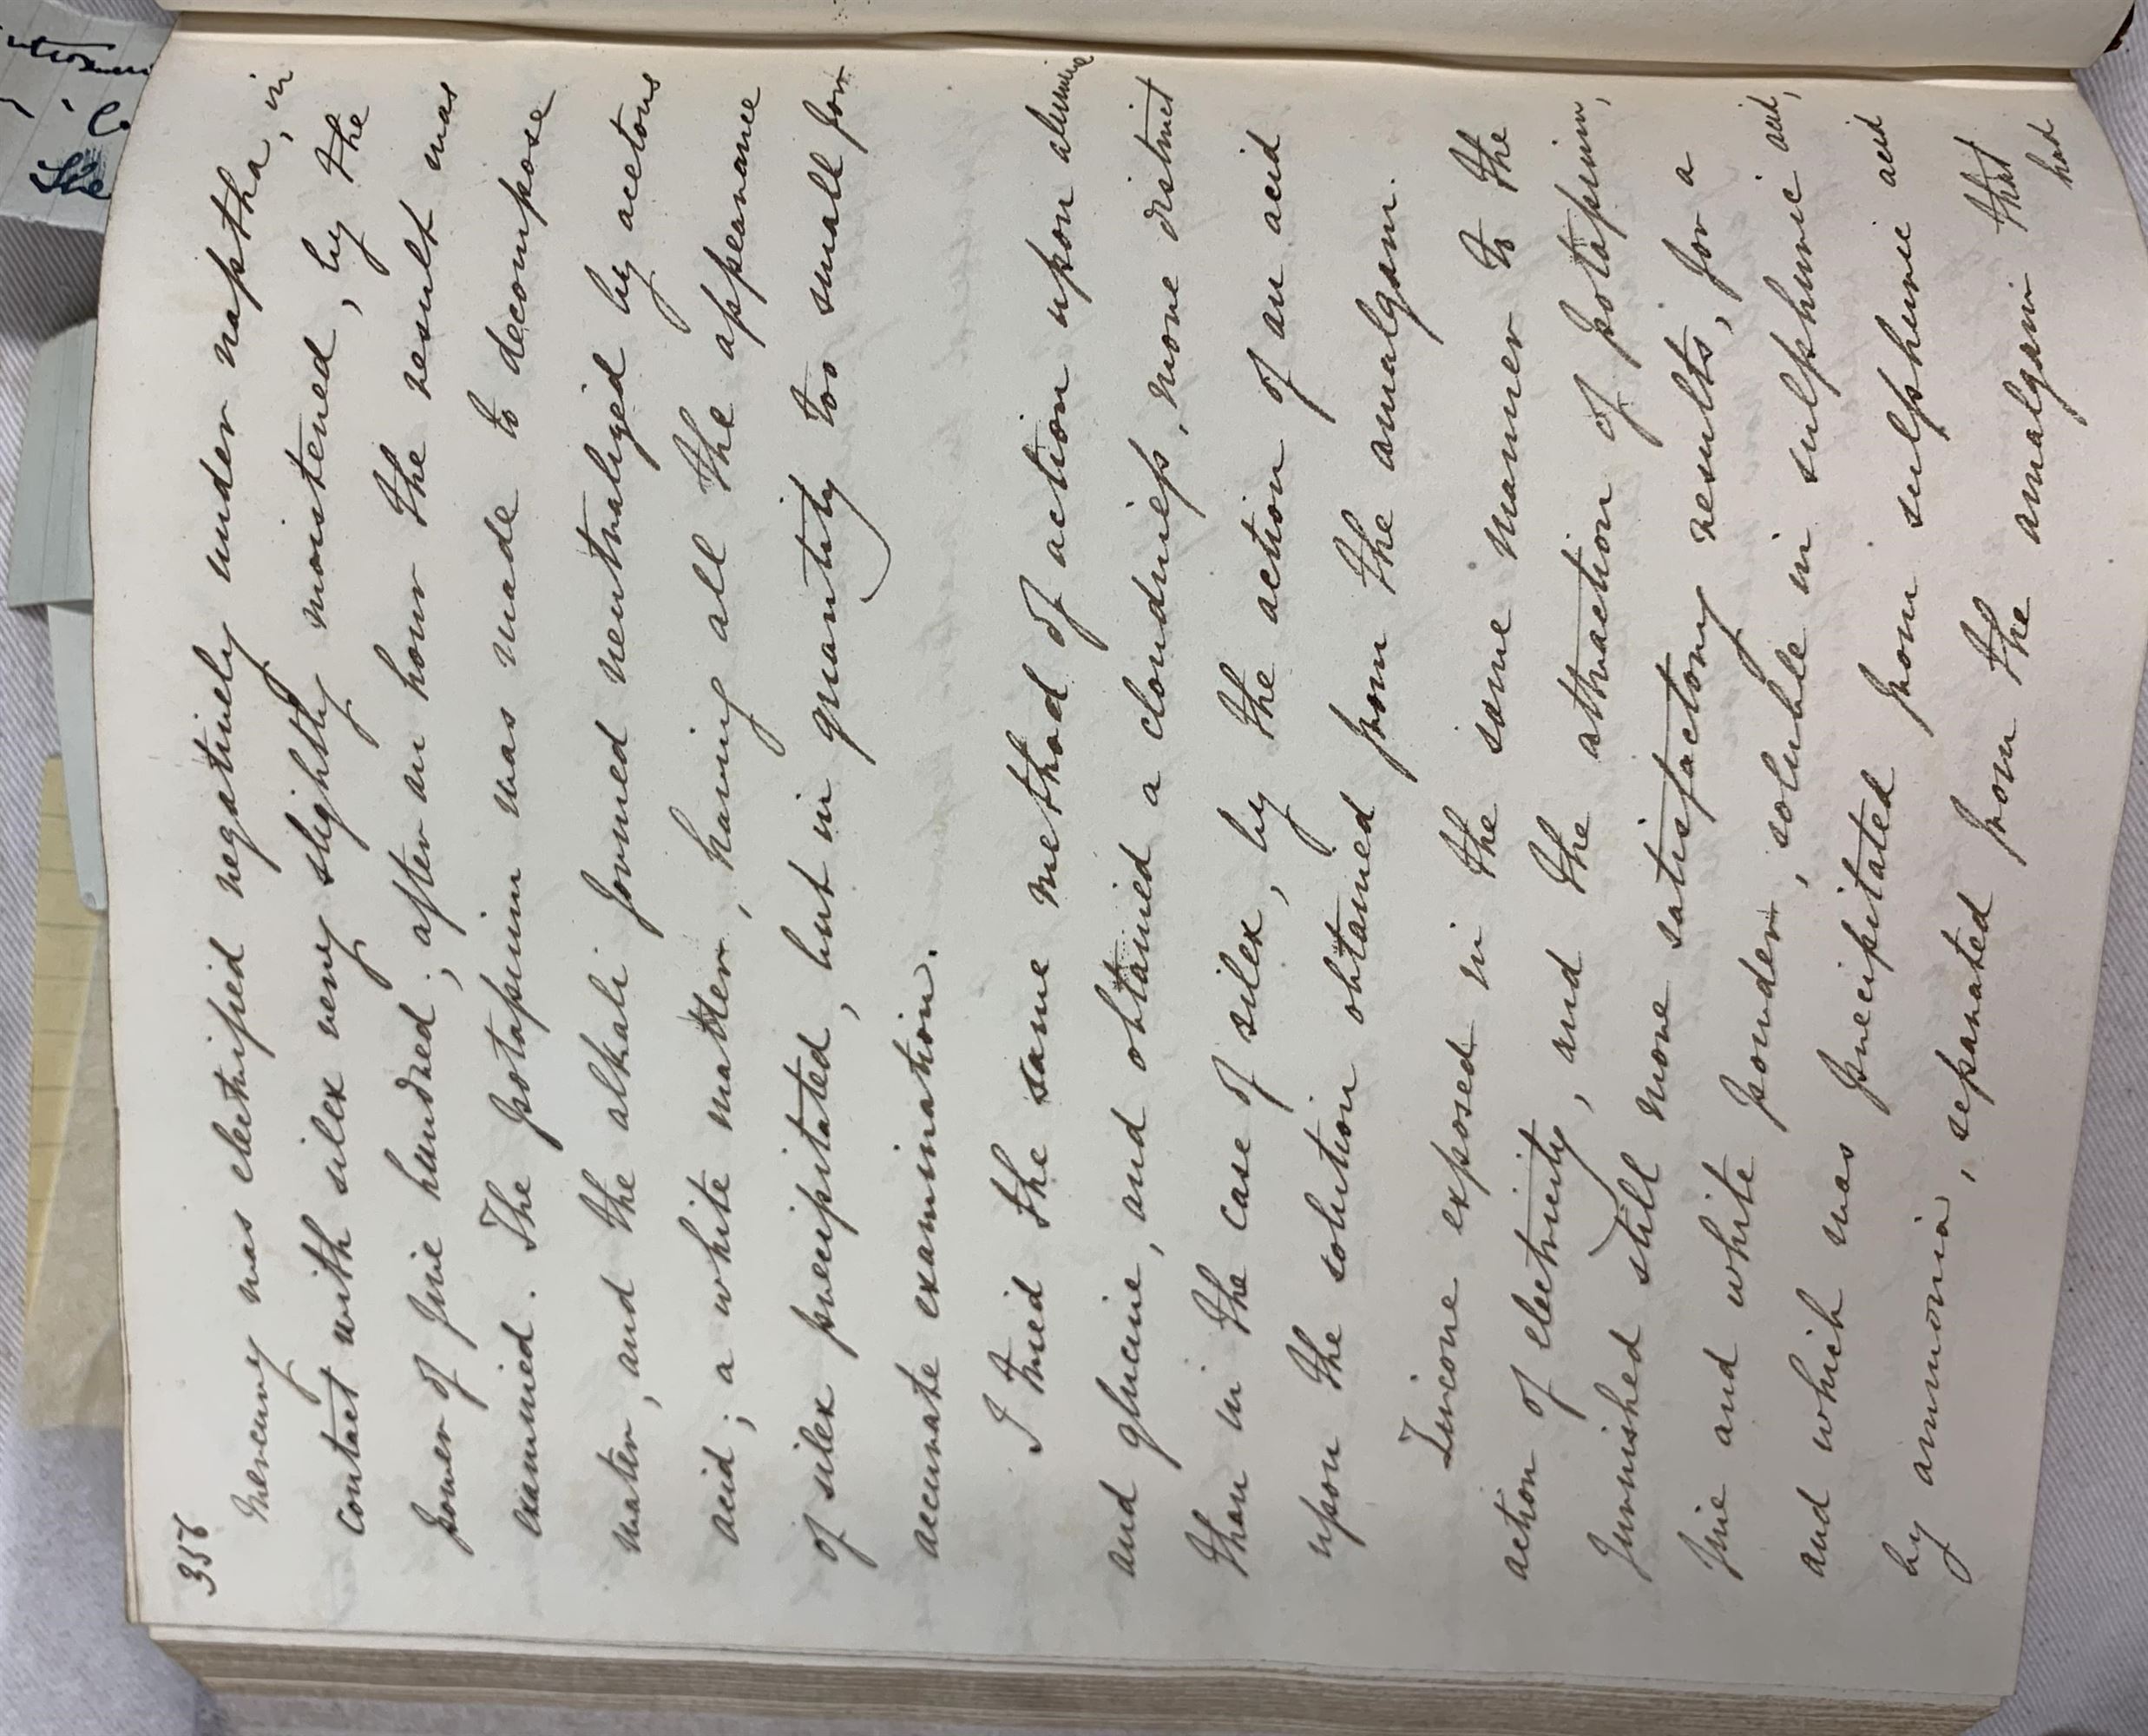 356
Mercury was electrified negatively under naptha, in
contact with silex very slightly moistened, by the
power of five hundred; after an hour the result was
examined. The potassium was made to decompose
water, and the alkali formed neutralized by acetous
acid; a white matter, having all the appearance
of silex precipitated, but in quantity too small for
accurate examination.
I tried the same method of action upon alumine
and glucine, and obtained a cloudiness, more distinct
than in the case of silex, by the action of an acid
upon the solution obtained from the amalgam.
Zircone exposed in the same manner to the
action of electricity, and the attraction of potassium,
furnished still more satisfactory results, for a
fine and white powder, soluble in sulphuric acid,
and which was precipitated from sulphuric acid
by ammonia, separated from the amalgam that
had